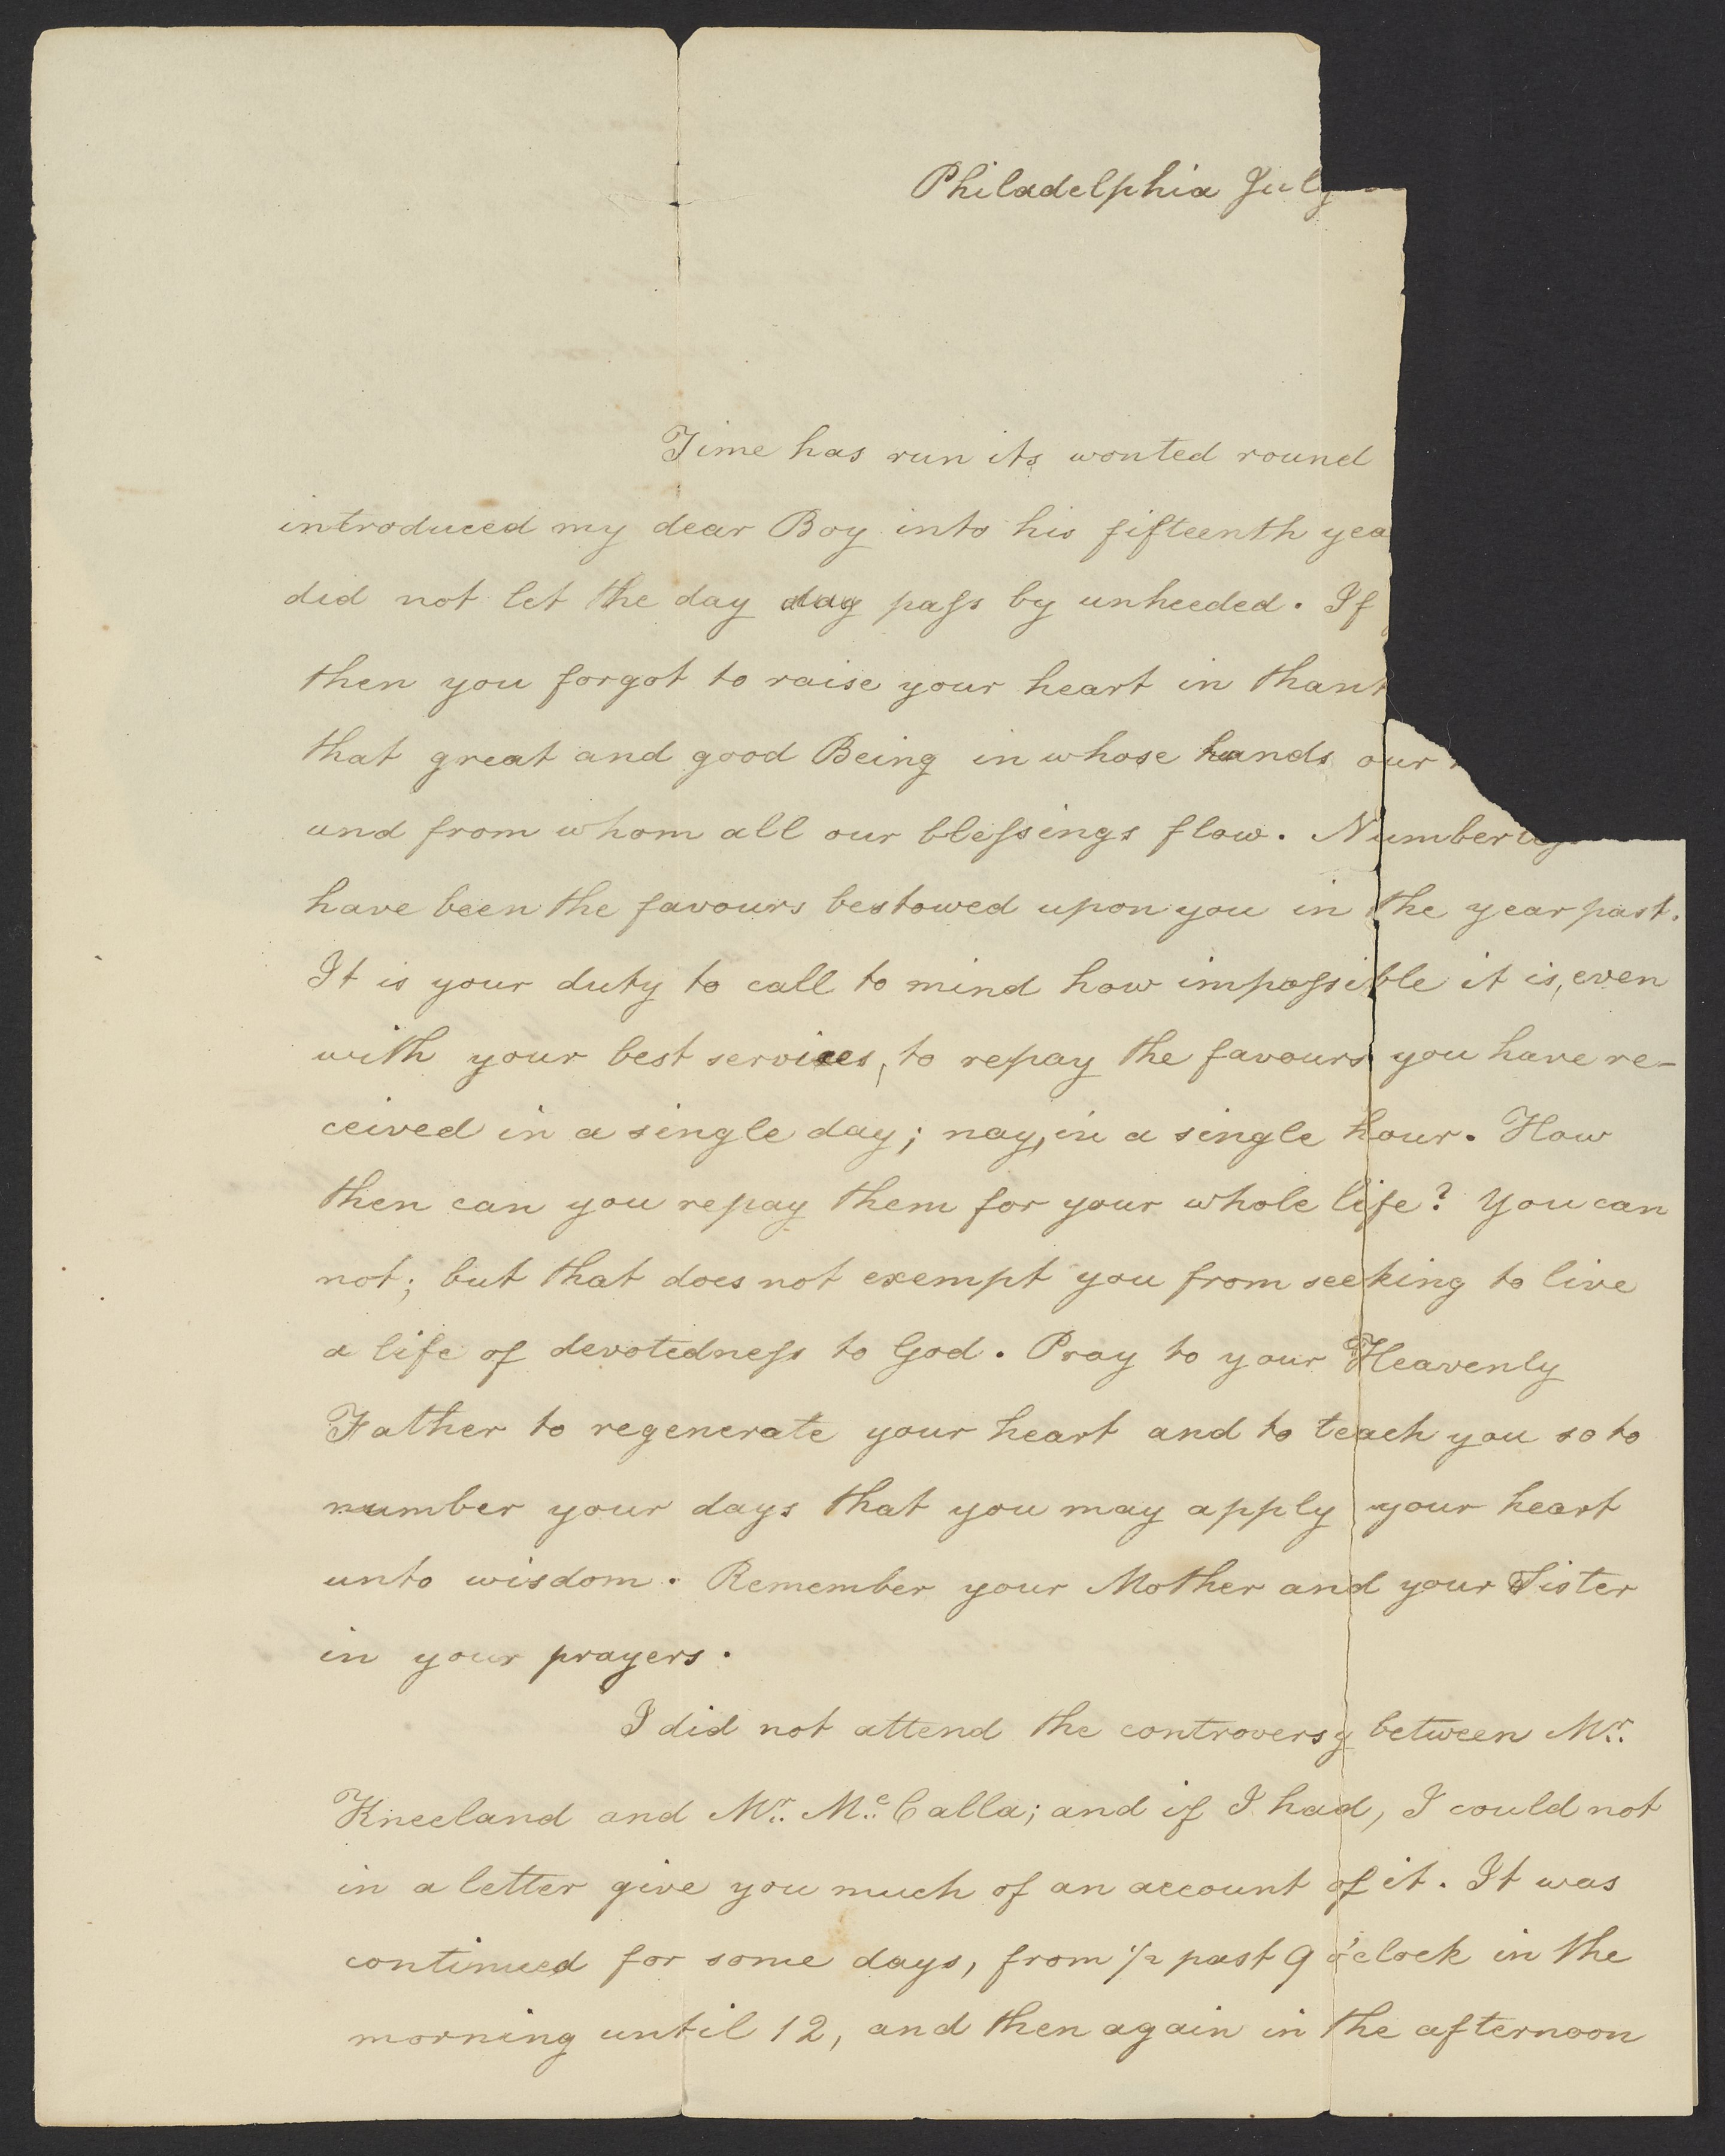 Philadelphia July
Time has run its wonted round
introduced my dear Boy into his fifteenth yea
did not let the day day pass by unheeded. If
then you forgot to raise your heart in thank
that great and good Being in whose hands our
and from whom all our blessings flow. Number
have been the favours bestowed upon you in the year past.
It is your duty to call to mind how impossible it is, even
with your best services, to repay the favours you have re-
ceived in a single day; nay, in a single hour. How
then can you repay them for your whole life? You can
not; but that does not exempt you from seeking to live
a life of devotedness to God. Pray to your Heavenly
Father to regenerate your heart and to teach you so to
number your days that you may apply your heart
unto wisdom. Remember your Mother and your Sister
in your prayers.
I did not attend the controversy between Mr.
Kneeland and Mr. Mc. Calla; and if I had, I could not
in a letter give you much of an account of it. It was
continued for some days, from 1/2 past 9 o'clock in the
morning until 12, and then again in the afternoon